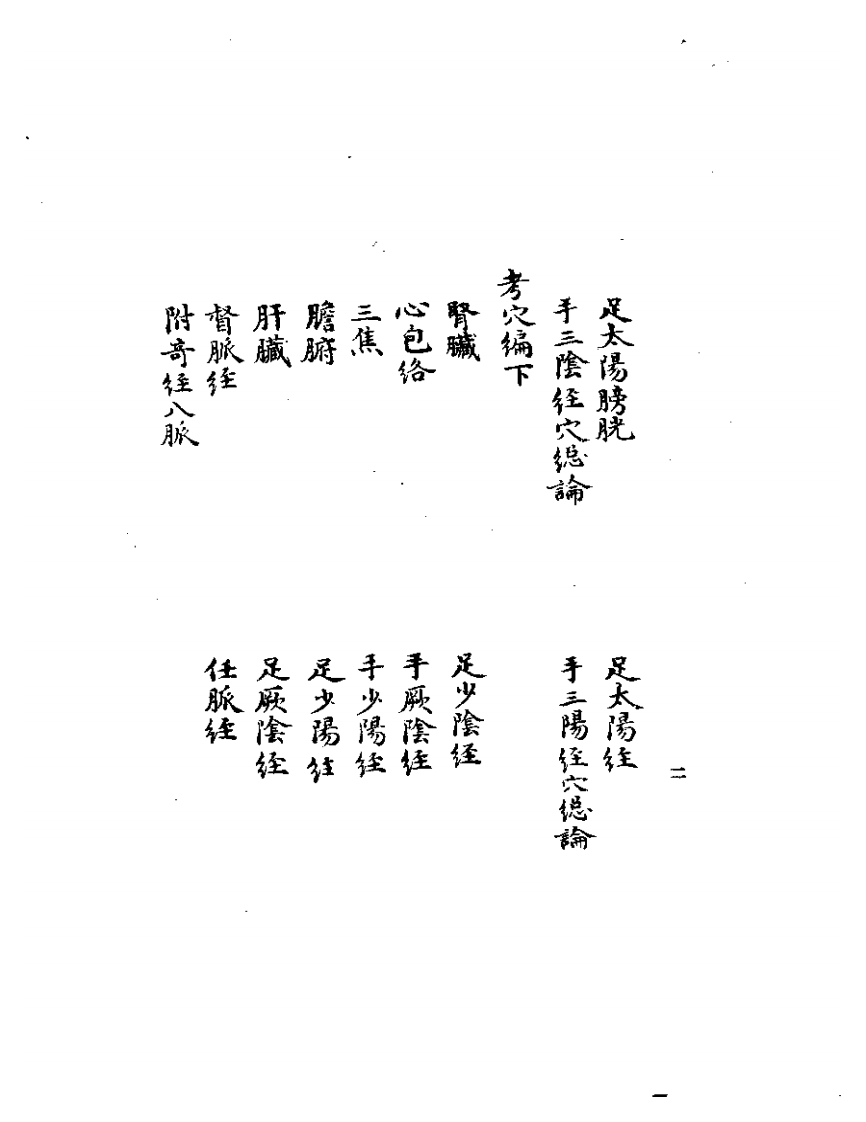 二
足太陽膀胱　足太陽経
手三陰経穴総論　手三陽経穴総論
考穴編下
腎臓　足少陰経
心包絡　手厥陰経
三焦　手少陽経
膽腑　足少陽経
肝臓　足厥陰経
督脈経　任脈経
附奇経八脈